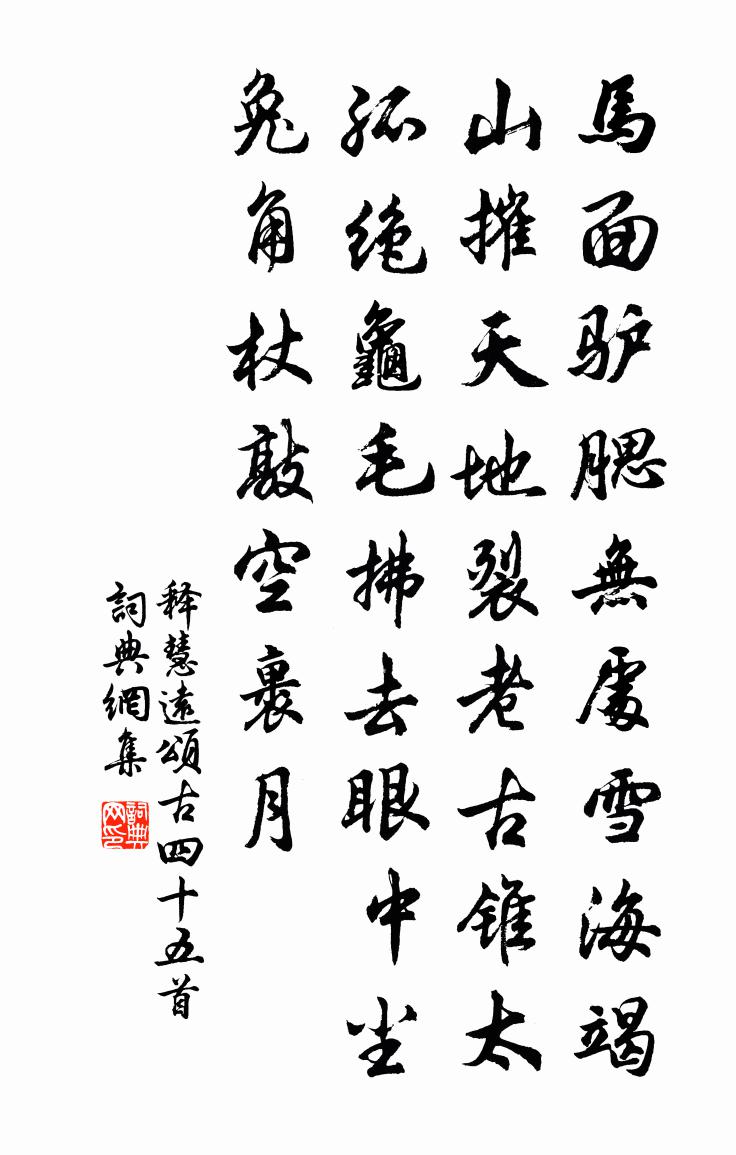 馬面驴腮無處雪海竭
山摧天地裂老古锥太
孤绝龜毛拂去眼中尘
兔角杖敲空裏月
释慧遠頌古四十五首
詞典網集
詞典
网印